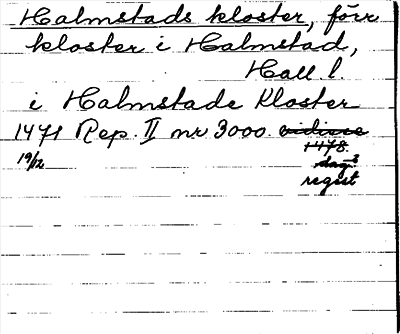 Halmstads kloster, förr
kloster i Halmstad,
Hall l.
i Halmstade Kloster
1471 Rep. II nr 3000. vidisse
19/12 1478.
dag.
regest